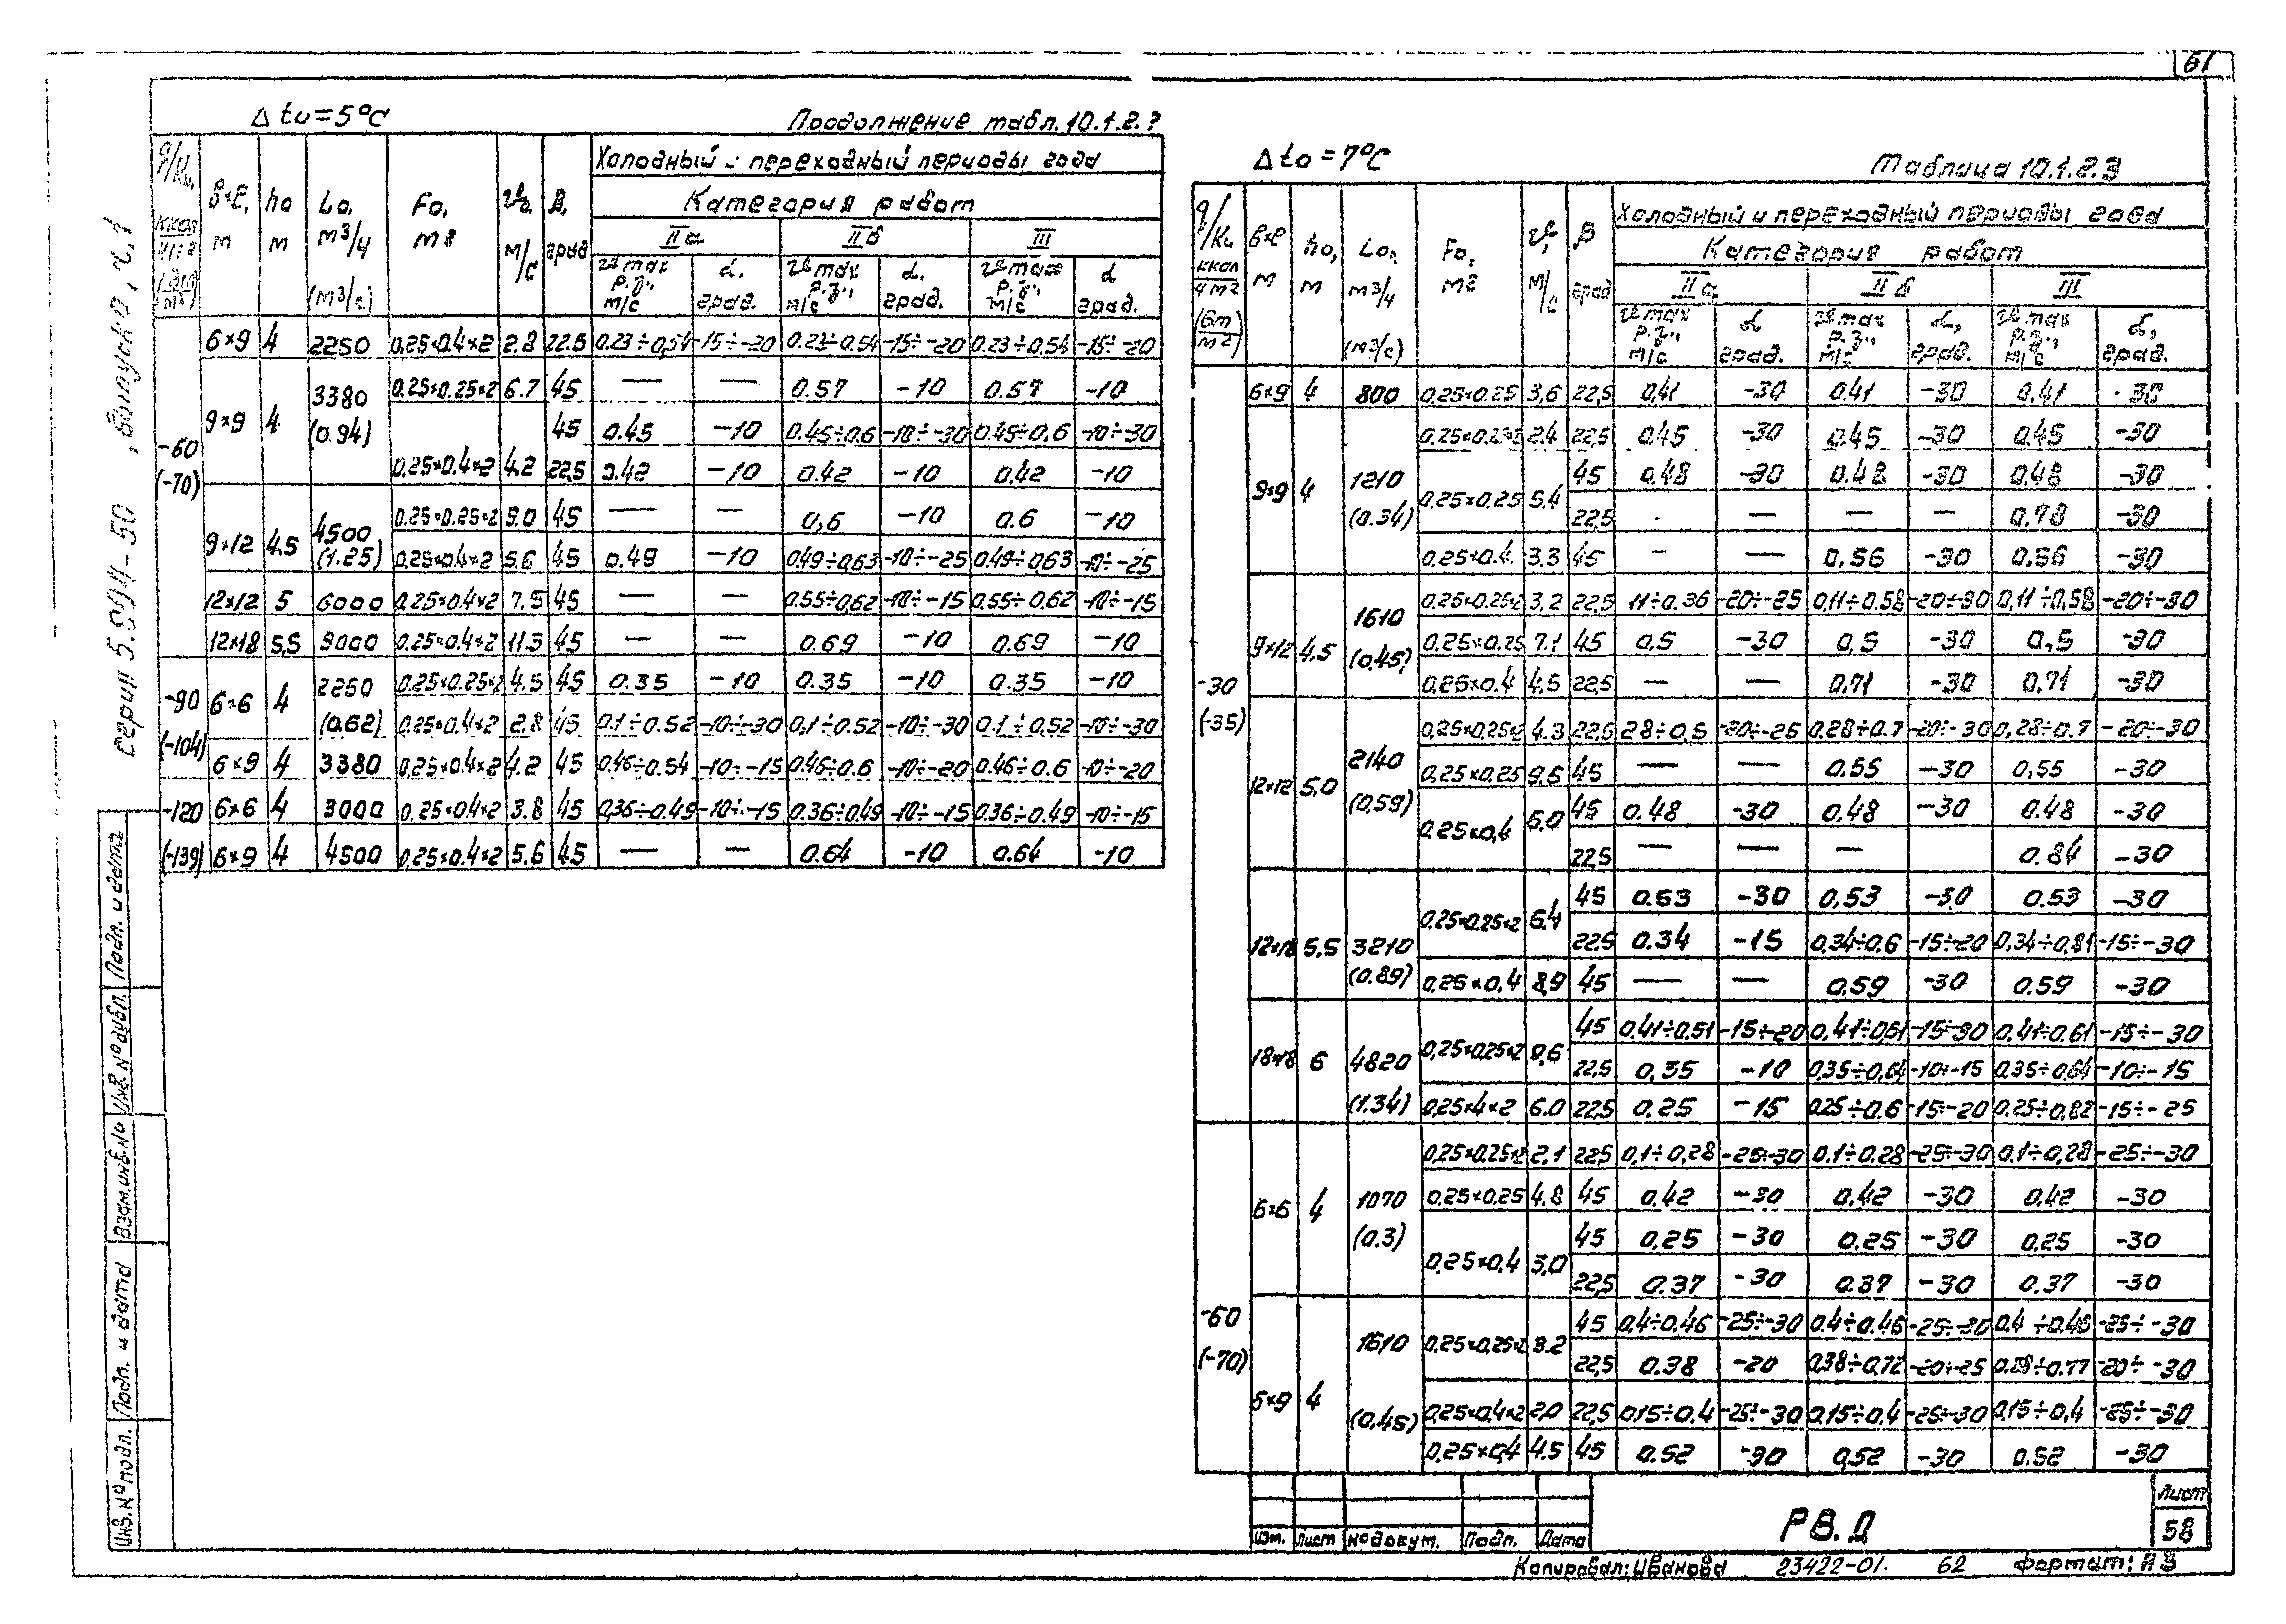 61
Δ to = 5°C
Продолжение табл. 10.1.2.
q/Fu, ккал/ч м² (Вт/м²) | B×L, м | ho м | Lo, м³/ч (м³/с) | Fo, м² | v0, м/с | β, град | Холодный и переходный периоды года
Категория работ
IIа | IIб | III
v max р.з., м/с | α, град. | v max р.з., м/с | α, град. | v max р.з., м/с | α град.
-60 (-70)
6×9 | 4 | 2250 | 0.25×0.4×2 | 2.8 | 22.5 | 0.23÷0,54 | -15÷-20 | 0.23÷0.54 | -15÷-20 | 0.23÷0.54 | -15÷-20
9×9 | 4 | 3380 (0.94) | 0.25×0.25×2 | 6.7 | 45 | — | — | 0.57 | -10 | 0.57 | -10
45 | 0.45 | -10 | 0.45÷0.6 | -10÷-30 | 0.45÷0,6 | -10÷-30
0.25×0.4×2 | 4.2 | 22.5 | 0.42 | -10 | 0.42 | -10 | 0.42 | -10
9×12 | 4.5 | 4500 (1.25) | 0.25×0.25×2 | 9.0 | 45 | — | — | 0,6 | -10 | 0.6 | -10
0.25×0.4×2 | 5.6 | 45 | 0.49 | -10 | 0.49÷0,63 | -10÷-25 | 0.49÷0,63 | -10÷-25
12×12 | 5 | 6000 | 0.25×0.4×2 | 7.5 | 45 | — | — | 0.55÷0,62 | -10÷-15 | 0,55÷0.62 | -10÷-15
12×18 | 5,5 | 9000 | 0.25×0.4×2 | 11.3 | 45 | — | — | 0.69 | -10 | 0.69 | -10
-90 (-104)
6×6 | 4 | 2250 (0.62) | 0.25×0.25×2 | 4.5 | 45 | 0.35 | -10 | 0.35 | -10 | 0.35 | -10
0.25×0.4×2 | 2.8 | 45 | 0.1÷0.52 | -10÷-30 | 0,1÷0.52 | -10÷-30 | 0.1÷0,52 | -10÷-30
6×9 | 4 | 3380 | 0.25×0.4×2 | 4.2 | 45 | 0.46÷0.54 | -10÷-15 | 0.46÷0.6 | -10÷-20 | 0.46÷0.6 | -10÷-20
-120 (-139)
6×6 | 4 | 3000 | 0,25×0.4×2 | 3.8 | 45 | 0,36÷0.49 | -10÷-15 | 0.36÷0,49 | -10÷-15 | 0.36÷0.49 | -10÷-15
6×9 | 4 | 4500 | 0,25×0.4×2 | 5.6 | 45 | — | — | 0.64 | -10 | 0.64 | -10
Δ to = 7°C
Таблица 10.1.2.3
q/Fu ккал/ч м² (Вт/м²) | B×L м | ho, м | Lo, м³/ч (м³/с) | Fo, м² | v, м/с | β град | Холодный и переходный периоды года
Категория работ
IIа | IIб | III
v max р.з., м/с | α град. | v max р.з., м/с | α, град. | v max р.з., м/с | α, град.
-30 (-35)
6×9 | 4 | 800 | 0.25×0.25 | 3,6 | 22,5 | 0,41 | -30 | 0.41 | -30 | 0.41 | -30
9×9 | 4 | 1210 (0.34) | 0,25×0.25×2 | 2.4 | 22,5 | 0,45 | -30 | 0.45 | -30 | 0.45 | -30
0.25×0.25 | 5.4 | 45 | 0.48 | -30 | 0.48 | -30 | 0.48 | -30
22,5 | - | — | — | — | 0,78 | -30
0,25×0.4 | 3.3 | 45 | — | — | 0,56 | -30 | 0,56 | -30
9×12 | 4.5 | 1610 (0,45) | 0,25×0.25×2 | 3,2 | 22,5 | 11÷0.36 | -20÷-25 | 0,11÷0,58 | -20÷-30 | 0,11÷0,58 | -20÷-30
0,25×0.25 | 7.1 | 45 | 0,5 | -30 | 0,5 | -30 | 0,5 | -30
0,25×0.4 | 4.5 | 22,5 | — | — | 0,71 | -30 | 0,71 | -30
12×12 | 5,0 | 2140 (0,59) | 0,25×0,25×2 | 4.3 | 22,5 | 28÷0,5 | -20÷-25 | 0.28÷0.7 | -20÷-30 | 0,28÷0,7 | -20÷-30
0,25×0,25 | 9,5 | 45 | — | — | 0.55 | -30 | 0,55 | -30
0.25×0,4 | 6,0 | 45 | 0.48 | -30 | 0,48 | -30 | 0.48 | -30
22,5 | — | — | — | 0.84 | -30
12×18 | 5,5 | 3210 (0.89) | 0.25×0.25×2 | 6.4 | 45 | 0.53 | -30 | 0,53 | -30 | 0.53 | -30
22,5 | 0.34 | -15 | 0,34÷0,6 | -15÷-20 | 0,34÷0,81 | -15÷-30
0,25×0,4 | 8,9 | 45 | — | — | 0,59 | -30 | 0.59 | -30
18×18 | 6 | 4820 (1.34) | 0,25×0.25×2 | 9,6 | 45 | 0.41÷0,51 | -15÷-20 | 0,41÷0,61 | -15÷-30 | 0.41÷0.61 | -15÷-30
22,5 | 0,35 | -10 | 0,35÷0,64 | -10÷-15 | 0,35÷0,64 | -10÷-15
0,25×4×2 | 6.0 | 22,5 | 0.25 | -15 | 0.25÷0.6 | -15÷-20 | 0.25÷0,82 | -15÷-25
-60 (-70)
6×6 | 4 | 1070 (0.3) | 0,25×0.25×2 | 2,1 | 22,5 | 0,1÷0,28 | -25÷-30 | 0.1÷0.28 | -25÷-30 | 0.1÷0,28 | -25÷-30
0,25×0.25 | 4.8 | 45 | 0.42 | -30 | 0,42 | -30 | 0.42 | -30
0,25×0,4 | 3,0 | 45 | 0,25 | -30 | 0.25 | -30 | 0.25 | -30
22,5 | 0.37 | -30 | 0.37 | -30 | 0.37 | -30
6×9 | 4 | 1610 (0,45) | 0,25×0,25×2 | 3.2 | 45 | 0,4÷0.46 | -25÷-30 | 0.4÷0.46 | -25÷-30 | 0.4÷0.46 | -25÷-30
22,5 | 0.38 | -20 | 0,38÷0,72 | -20÷-25 | 0.38÷0.77 | -20÷-30
0,25×0,4×2 | 2.0 | 22,5 | 0.15÷0.4 | -25÷-30 | 0,15÷0,4 | -25÷-30 | 0,15÷0,4 | -25÷-30
0,25×0,4 | 4.5 | 45 | 0.52 | -30 | 0,52 | -30 | 0.52 | -30
Изм. Лист №докум. Подп. Дата
РВ.Д
Лист
58
Копировал: Иванова 23422-01. 62 Формат: А3
серия 5.904-50, выпуск 0, ч.1
Подп. и дата
Инв.№дубл.
Взам.инв.№
Подп. и дата
Инв.№подл.